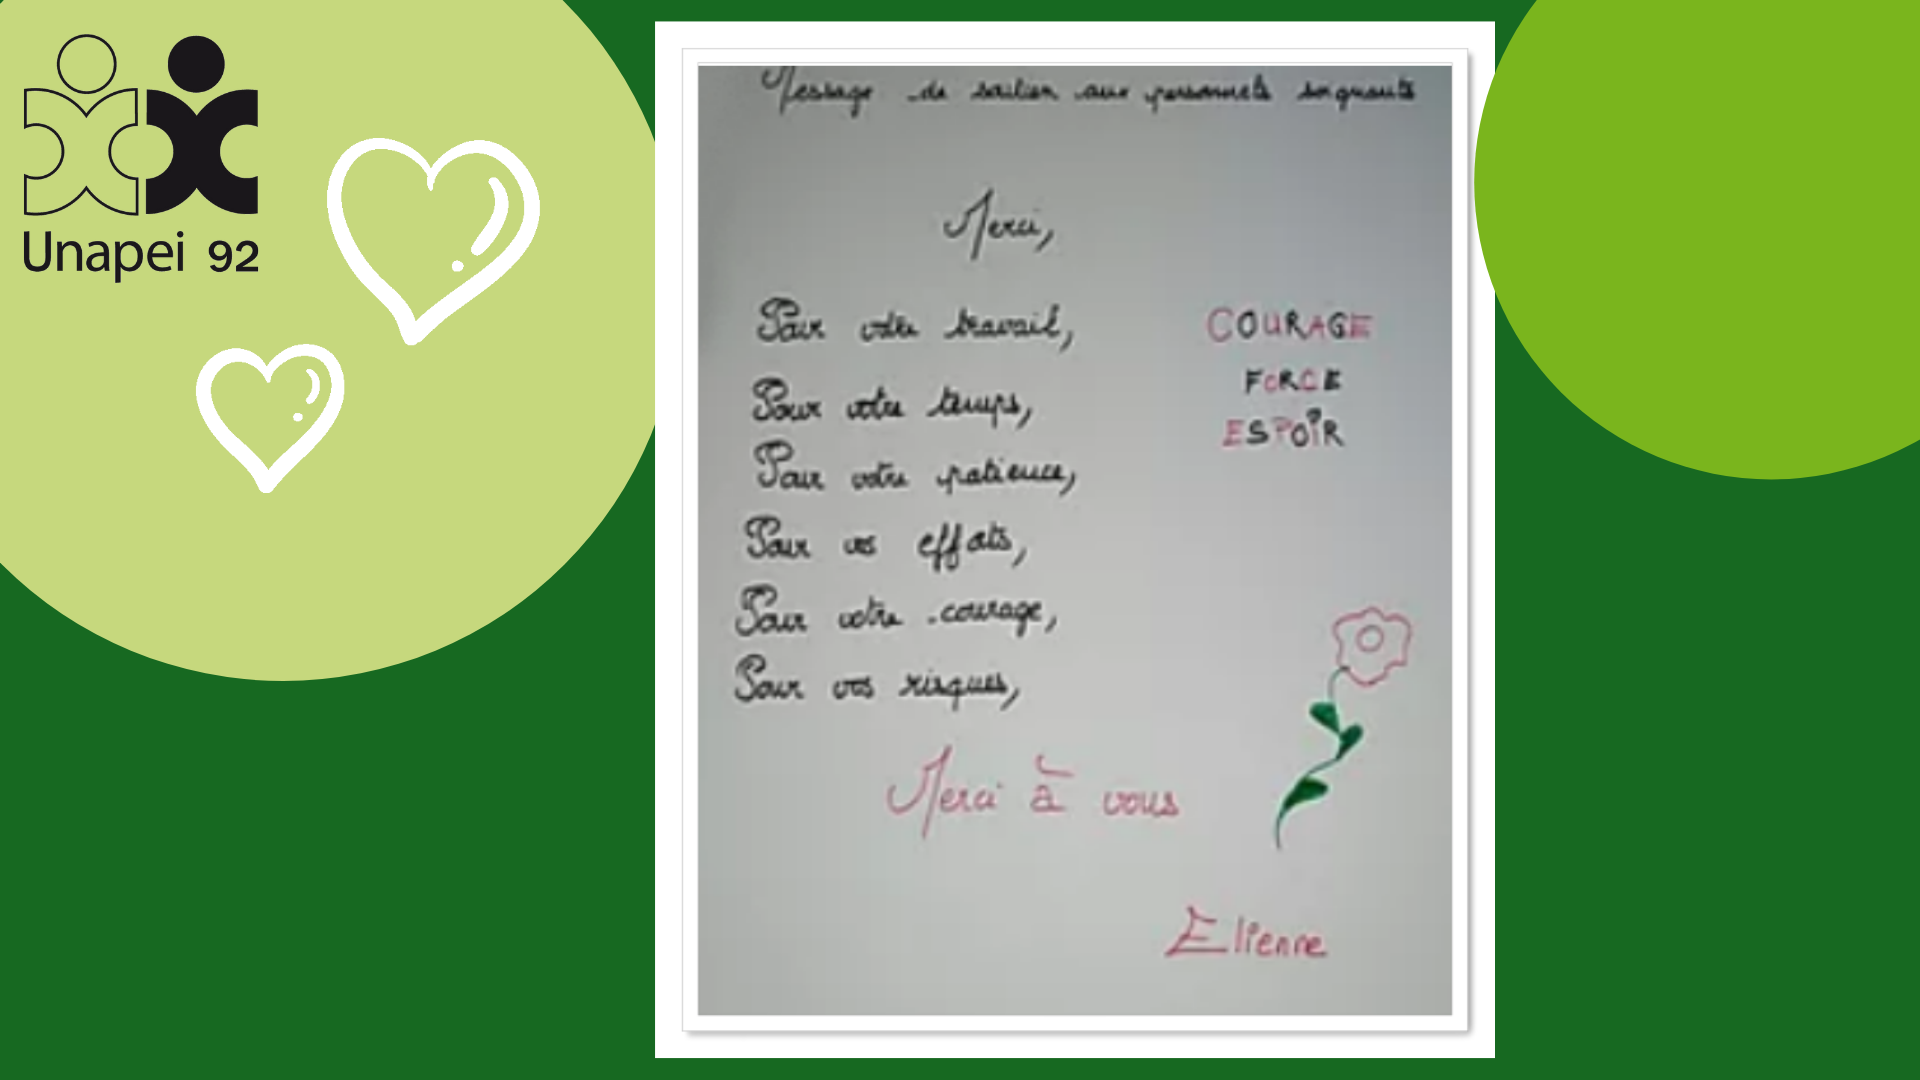 Unapei 92
Message de soutien aux personnels soignants
Merci,
Pour votre travail,
Pour votre temps,
Pour votre patience,
Pour vos efforts,
Pour votre courage,
Pour vos risques,
COURAGE
FORCE
ESPOIR
Merci à vous
Elienne